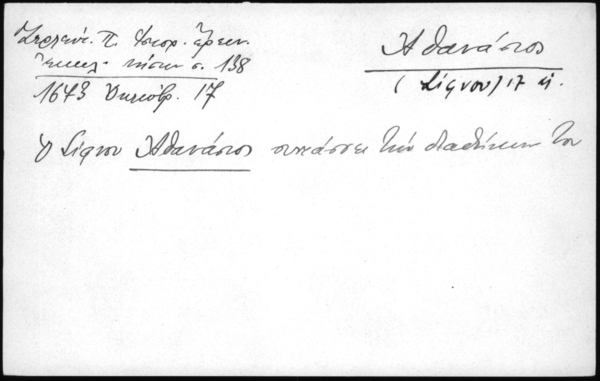 Ζερλέντ. Π. Ἱστορ. ἔρευν.
Ἐκκλ. νήσων σ. 138
1643 Ὀκτωβρ. 17
Ἀθανάσιος
(Σίφνου) 17 αἰ.
Ὁ Σίφνου Ἀθανάσιος συντάσσει τὴν διαθήκην του